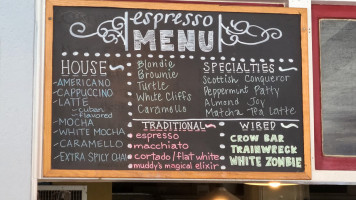 espresso
MENU
HOUSE
-AMERICANO
-CAPPUCCINO
-LATTE
-Cuban
-flavored
-MOCHA
-WHITE MOCHA
-CARAMELLO
-EXTRA SPICY CHAI
Blondie
Brownie
Turtle
White Cliffs
Caramello
SPECIALTIES
Scottish Conqueror
Peppermint Patty
Almond Joy
Matcha Tea Latte
TRADITIONAL
espresso
macchiato
cortado/flat white
muddy's magical elixir
WIRED
CROW BAR
TRAINWRECK
WHITE ZOMBIE